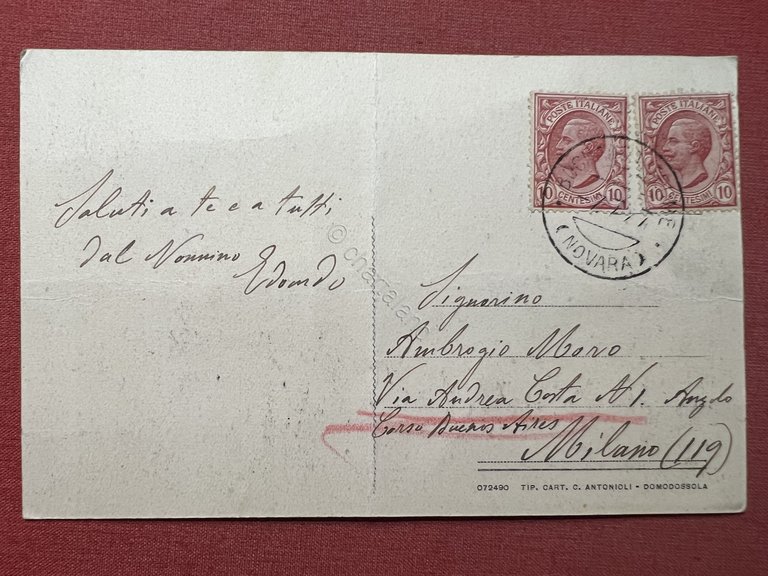 POSTE ITALIANE
POSTE ITALIANE
10 CENTESIMI 10
10 CENTESIMI 10
(NOVARA)
Saluti a te e a tutti
dal Nonnino
Edoardo
Signorino
Ambrogio Moro
Via Andrea Costa N 1. Angolo
Corso Buenos Aires
Milano (119)
072490 TIP. CART. C. ANTONIOLI - DOMODOSSOLA